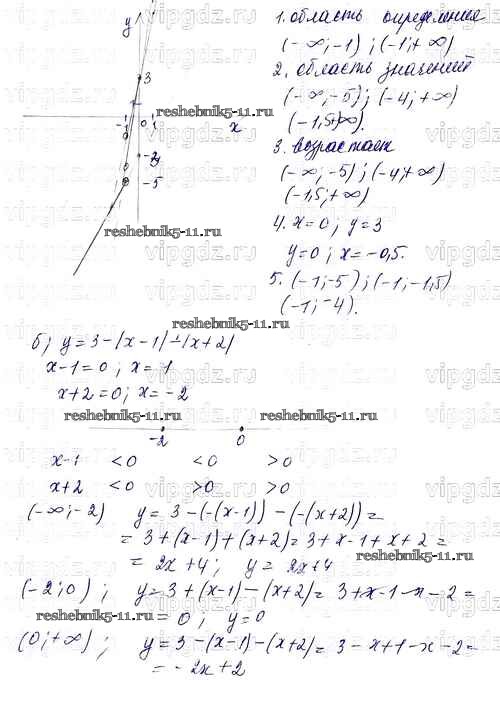 y
3
-1
0
1
x
-2
-5
1. область определения
(-∞;-1) ; (-1;+∞)
2. область значений
(-∞;-5); (-4;+∞)
(-1,5+∞).
3. возрастает
(-∞;-5) ; (-4;+∞)
(-1,5;+∞)
4. x=0; y=3
y=0; x=-0,5.
5. (-1;-5); (-1;-1,5)
(-1;-4).
reshebnik5-11.ru
reshebnik5-11.ru
reshebnik5-11.ru
б) y=3-|x-1|-|x+2|
x-1=0; x=1
x+2=0; x=-2
reshebnik5-11.ru
reshebnik5-11.ru
-2 0
x-1 <0 <0 >0
x+2 <0 >0 >0
(-∞;-2) y=3-(-(x-1))-(-(x+2))=
=3+(x-1)+(x+2)=3+x-1+x+2=
reshebnik5-11.ru
=2x+4; y=2x+4
(-2;0); y=3+(x-1)-(x+2)=3+x-1-x-2=
reshebnik5-11.ru
=0; y=0
(0;+∞); y=3-(x-1)-(x+2)=3-x+1-x-2=
reshebnik5-11.ru
=-2x+2
vipgdz.ru